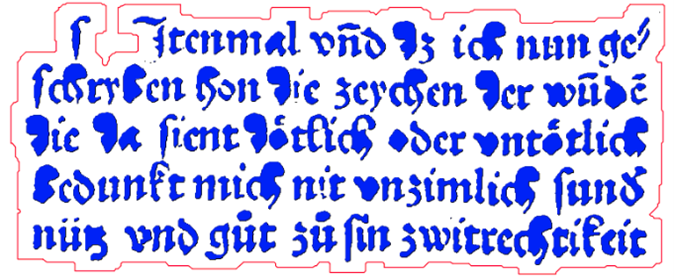 s Jtenmal vñd dz ich nun ge⸗
schryben hon die zeychen der wũdẽ
die da sient doͤtlich oder vntoͤtlich
bedunkt mich nit vnzimlich sund
nütz vnd gůt zů sin zwitrechtikeit